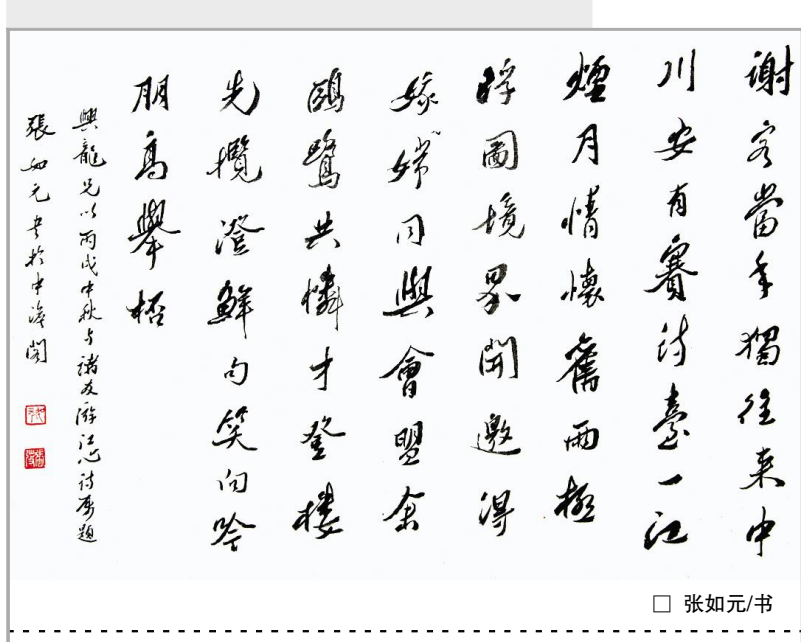 謝客當年獨往來中
川安有賽詩臺一江
煙月情懷舊兩極
浮圖境界開邀得
娥嫦同與會盟余
鷗鷺共憐才登樓
先攬澄鮮句笑向吟
朋高舉杯
興龍兄以丙戌中秋与諸友游江心詩属題
張如元書於中閣
□ 张如元/书